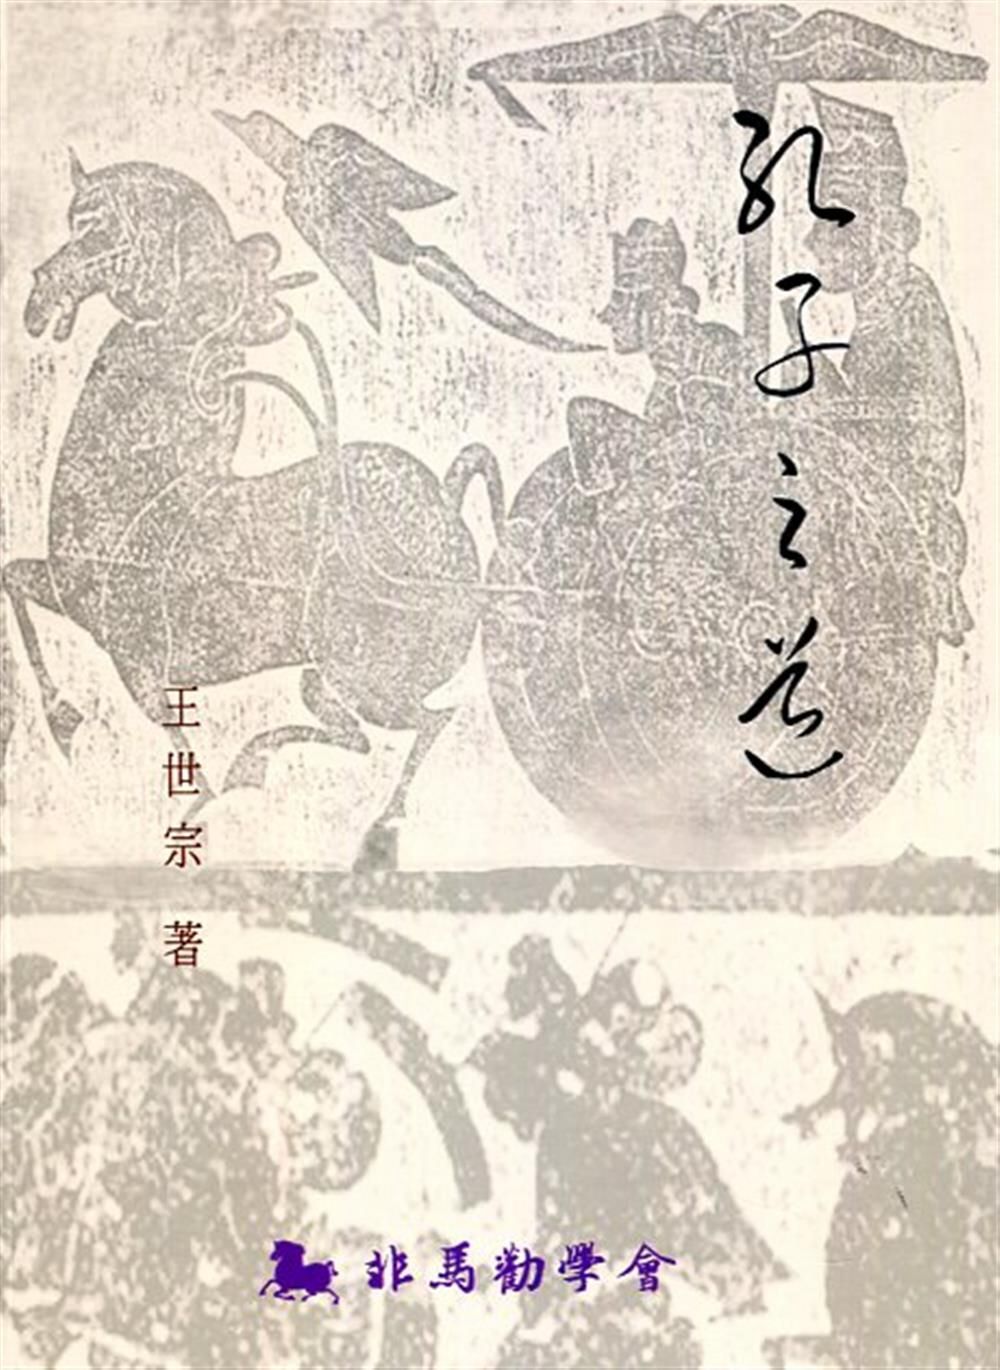 孔子之道
王世宗 著
非馬勸學會